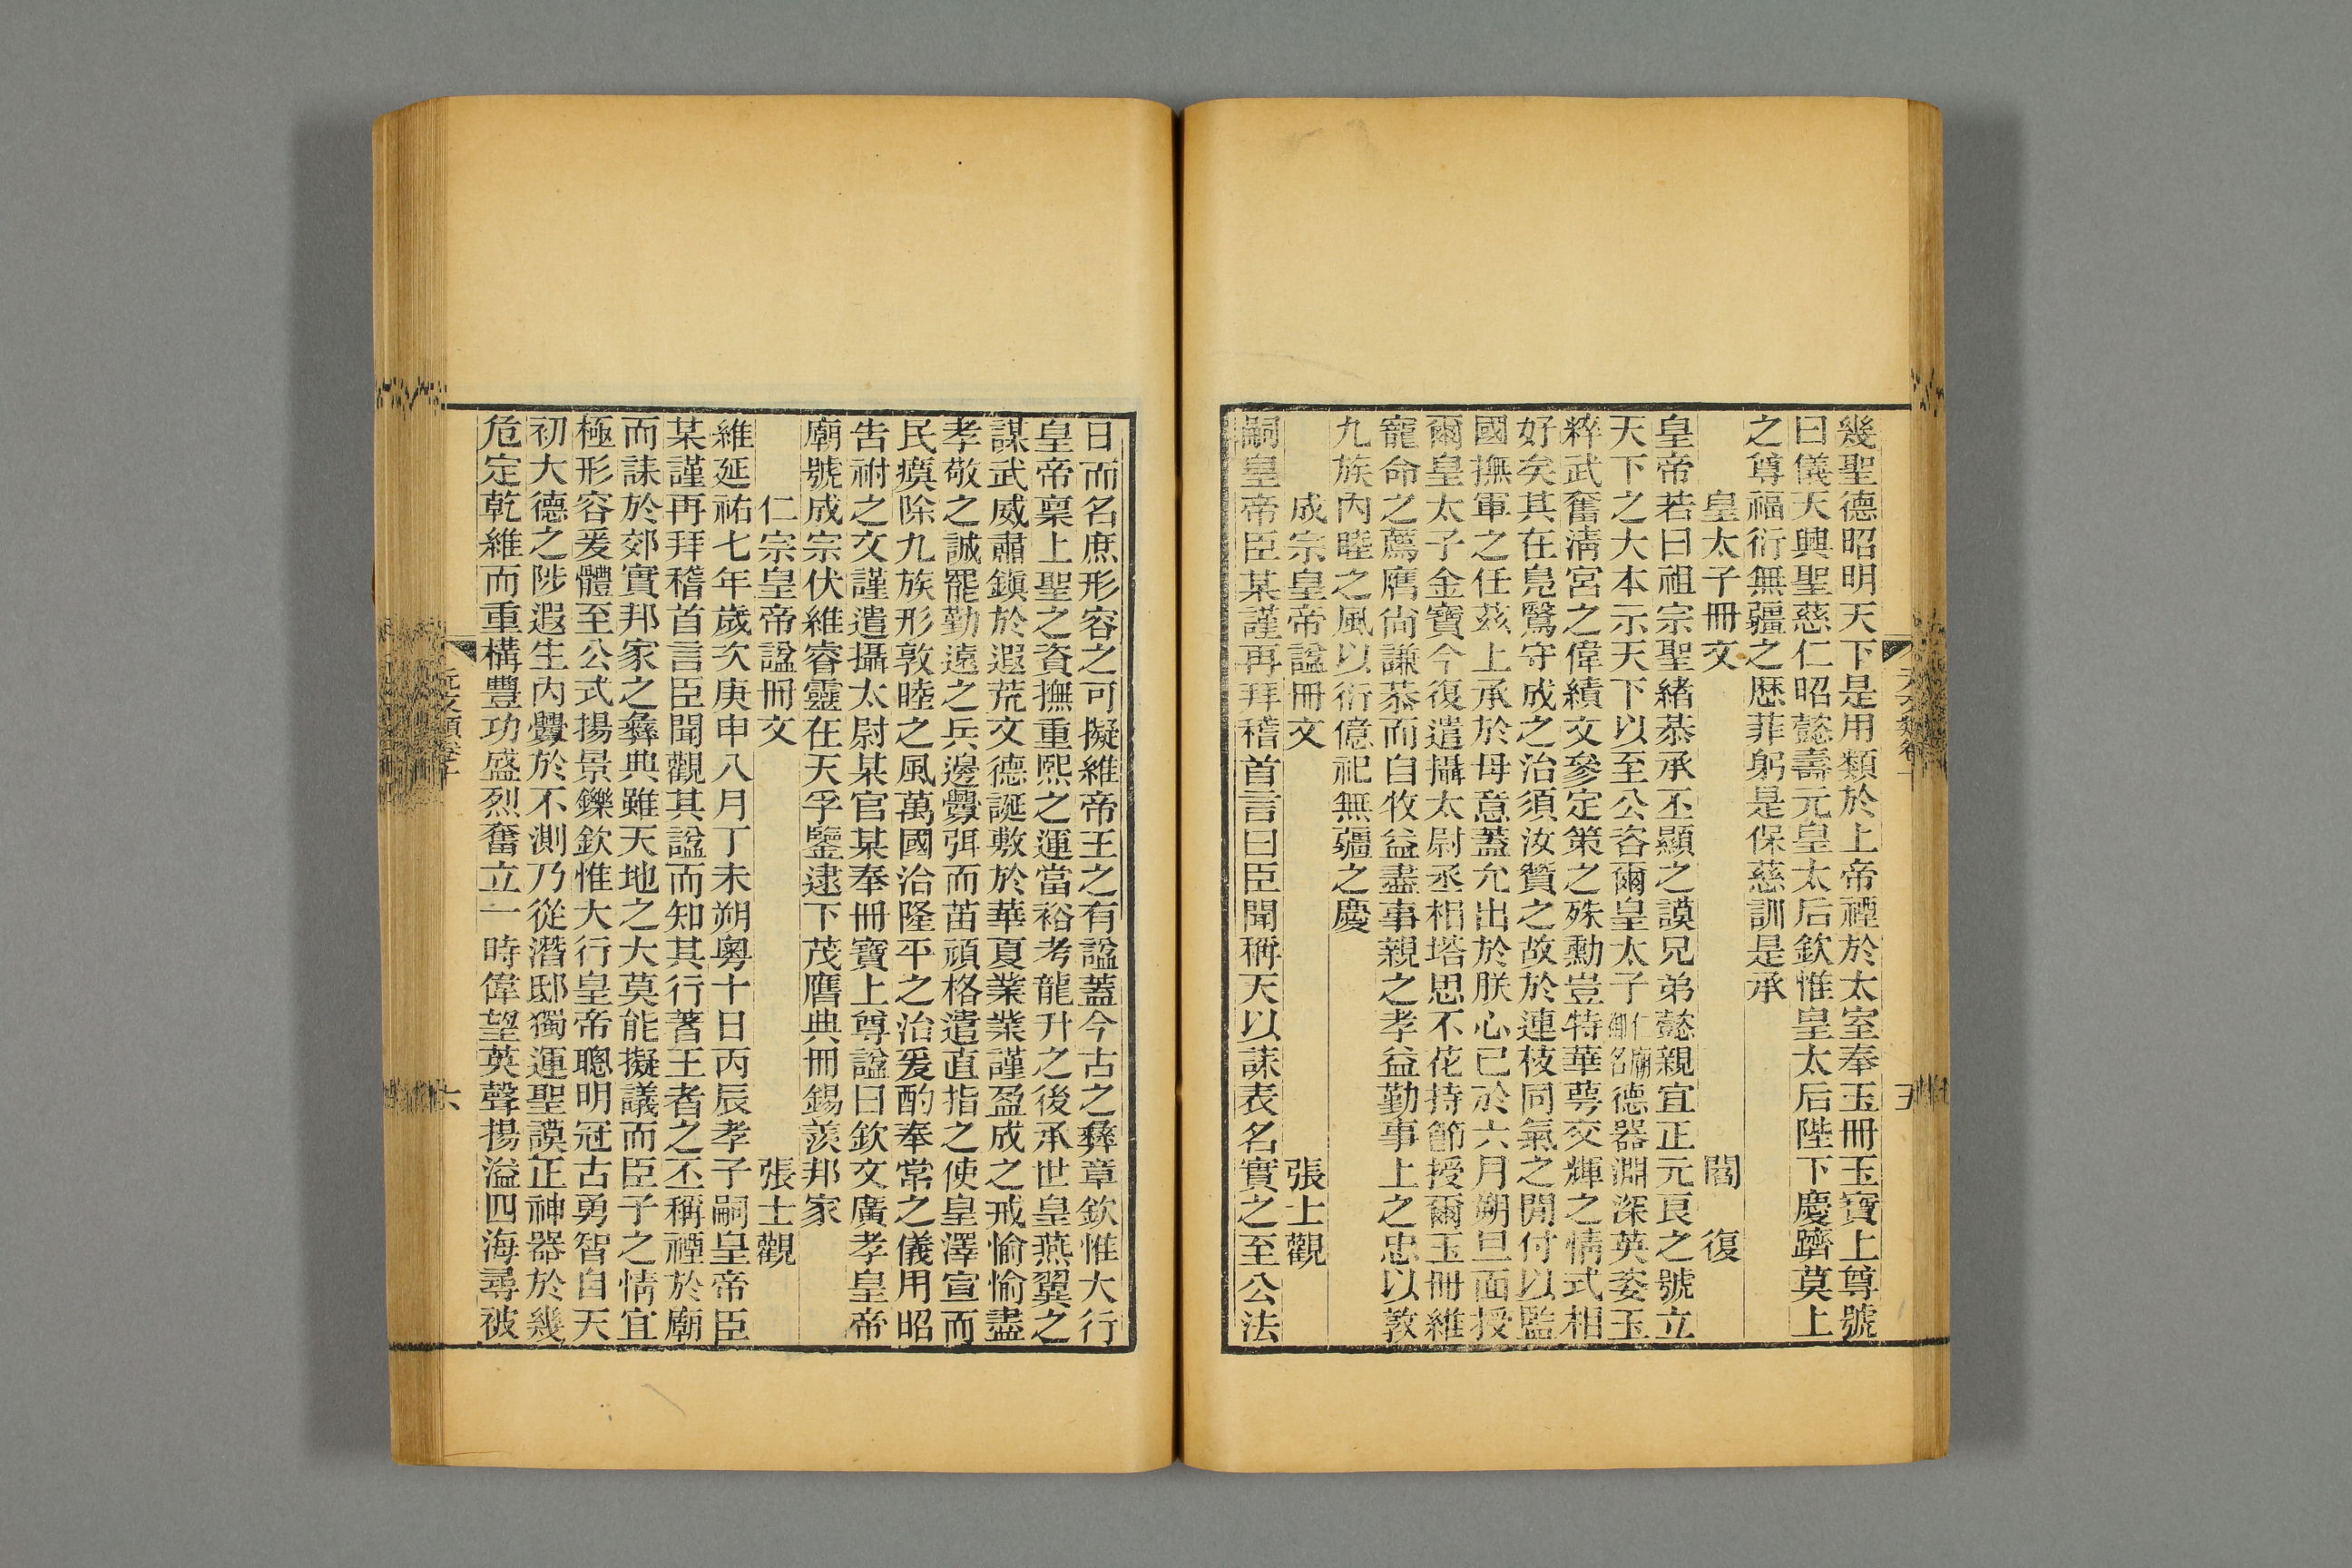 幾聖德昭明天下是用類於上帝禋於太室奉玉冊玉寶上尊號
曰儀天興聖慈仁昭懿壽元皇太后欽惟皇太后陛下慶躋莫上
之尊福衍無疆之歷菲躬是保慈訓是承
皇太子冊文 閻復
皇帝若曰祖宗聖緒恭承丕顯之謨兄弟懿親宜正元良之號立
天下之大本示天下以至公咨爾皇太子仁廟御名德器淵深英姿玉
粹武奮淸宮之偉績文參定策之殊勳豈特華萼交輝之情式相
好矣其在鳧鷖守成之治須汝贊之故於連枝同氣之閒付以監
國撫軍之任茲上承於母意蓋允出於朕心已於六月朔旦面授
爾皇太子金寶今復遣攝太尉丞相塔思不花持節授爾玉冊維
寵命之薦膺尙謙恭而自牧益盡事親之孝益勤事上之忠以敦
九族內睦之風以衍億祀無疆之慶
成宗皇帝諡冊文 張士觀
嗣皇帝臣某謹再拜稽首言曰臣聞稱天以誄表名實之至公法
日而名庶形容之可擬維帝王之有諡蓋今古之彝章欽惟大行
皇帝稟上聖之資撫重熙之運當裕考龍升之後承世皇燕翼之
謀武威肅鎭於遐荒文德誕敷於華夏業業謹盈成之戒愉愉盡
孝敬之誠罷勤遠之兵邊釁弭而苗頑格遣直指之使皇澤宣而
民瘼除九族形敦睦之風萬國治隆平之治爰酌奉常之儀用昭
告祔之文謹遣攝太尉某官某奉冊寶上尊諡曰欽文廣孝皇帝
廟號成宗伏維睿靈在天孚鑒逮下茂膺典冊錫羨邦家
仁宗皇帝諡冊文 張士觀
維延祐七年歲次庚申八月丁未朔粵十日丙辰孝子嗣皇帝臣
某謹再拜稽首言臣聞觀其諡而知其行著王者之丕稱禋於廟
而誄於郊實邦家之彝典雖天地之大莫能擬議而臣子之情宜
極形容爰體至公式揚景鑠欽惟大行皇帝聰明冠古勇智自天
初大德之陟遐生內釁於不測乃從潛邸獨運聖謨正神器於幾
危定乾維而重構豐功盛烈奮立一時偉望英聲揚溢四海尋被
五
六